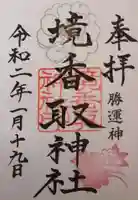 奉拝
勝運神
境香取神社
令和二年一月十九日